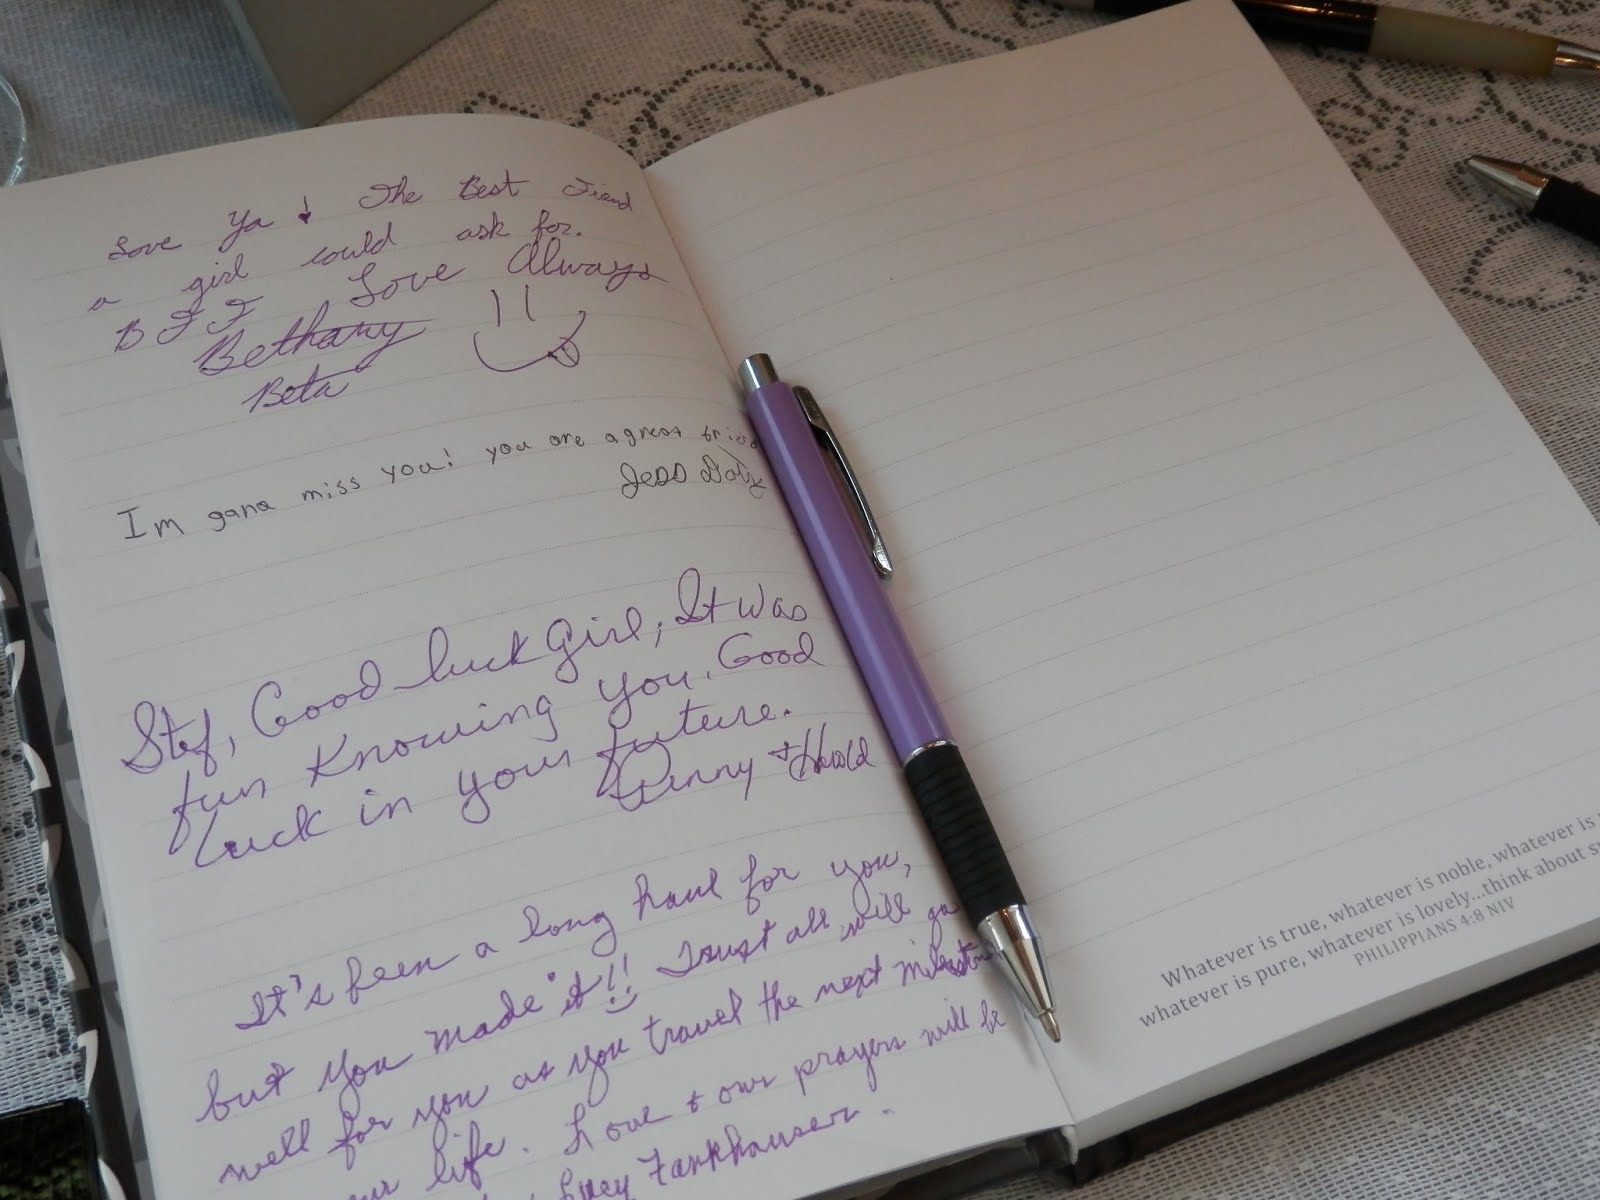 Love Ya! The Best Friend
a girl could ask for.
BFF Love Always
Bethany
Beta
Im gana miss you! you are a great friend
Jess
Stef, Good luck Girl, It was
fun Knowing you. Good
Luck in your future.
Penny + Harold
It's been a long haul for you,
but you made it!! Trust all will go
well for you as you travel the next
life. Love & our prayers will be
Lucy Fankhauser.
Whatever is true, whatever is noble, whatever is
whatever is pure, whatever is lovely...think about
PHILIPPIANS 4:8 NIV